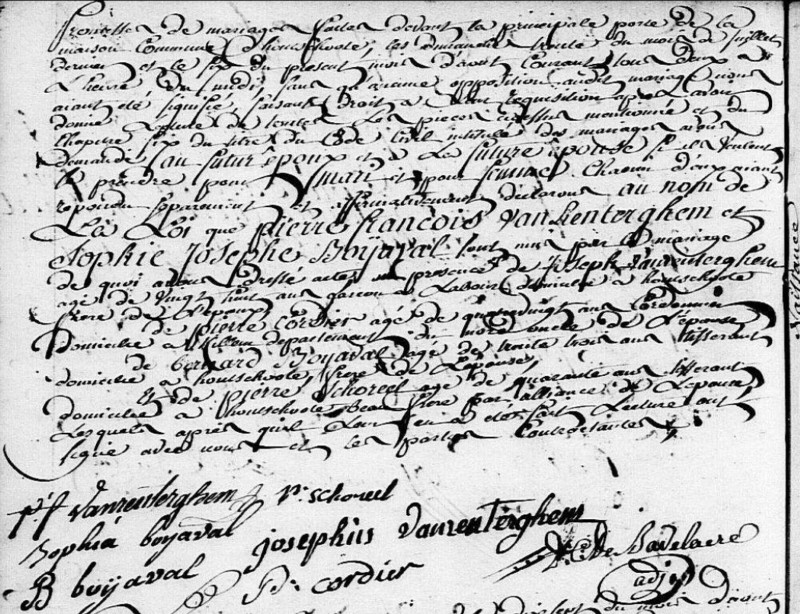 promesses de mariages faites devant la principale porte de la
maison Commune d'hontschoote, les dimanches trente du mois de juillet
dernier et le six du present mois d'août Courant tous deux à
L'heure du midi, sans qu'aucune opposition audit mariage nous
aiant été signifiée, faisant droit à leur requisition après avoir
donné Lecture de toutes Les pieces ci dessus mentionnées et du
Chapitre six du titre du Code Civil intitulé des mariages avons
demandé au futur époux et à La future épouse s'ils veulent
se prendre pour mari et pour femme, Chacun d'eux aiant
repondu separement et affirmativement declarons au nom de
La Loi que pierre françois Vanrenterghem et
Sophie Josephe Boyaval sont unis par le mariage
de quoi avons dressé acte en presence de Joseph Vanrenterghem
agé de vingt huit ans garcon de Labour domicilié à hontschoote
frere de L'epoux
de pierre Cordier agé de quatrevingt ans Cordonnier
domicilié à Killem departement du nord oncle de L'epouse
de bernard Boyaval agé de trente trois ans tisserant
domicilié à hontschoote, frere de L'epouse,
et de pierre Schoreel agé de quarante ans tisserant
domicilié à hontschoote beau frere par alliance de L'epouse
Lesquels après qu'il Leur en a été fait Lecture ont
signé avec nous et les parties Contractantes
p: f Vanrenterghem p: schoreel
Sophia boyaval
josephus Vanrenterghem
B boyaval P: cordier
De Badelaere
adj